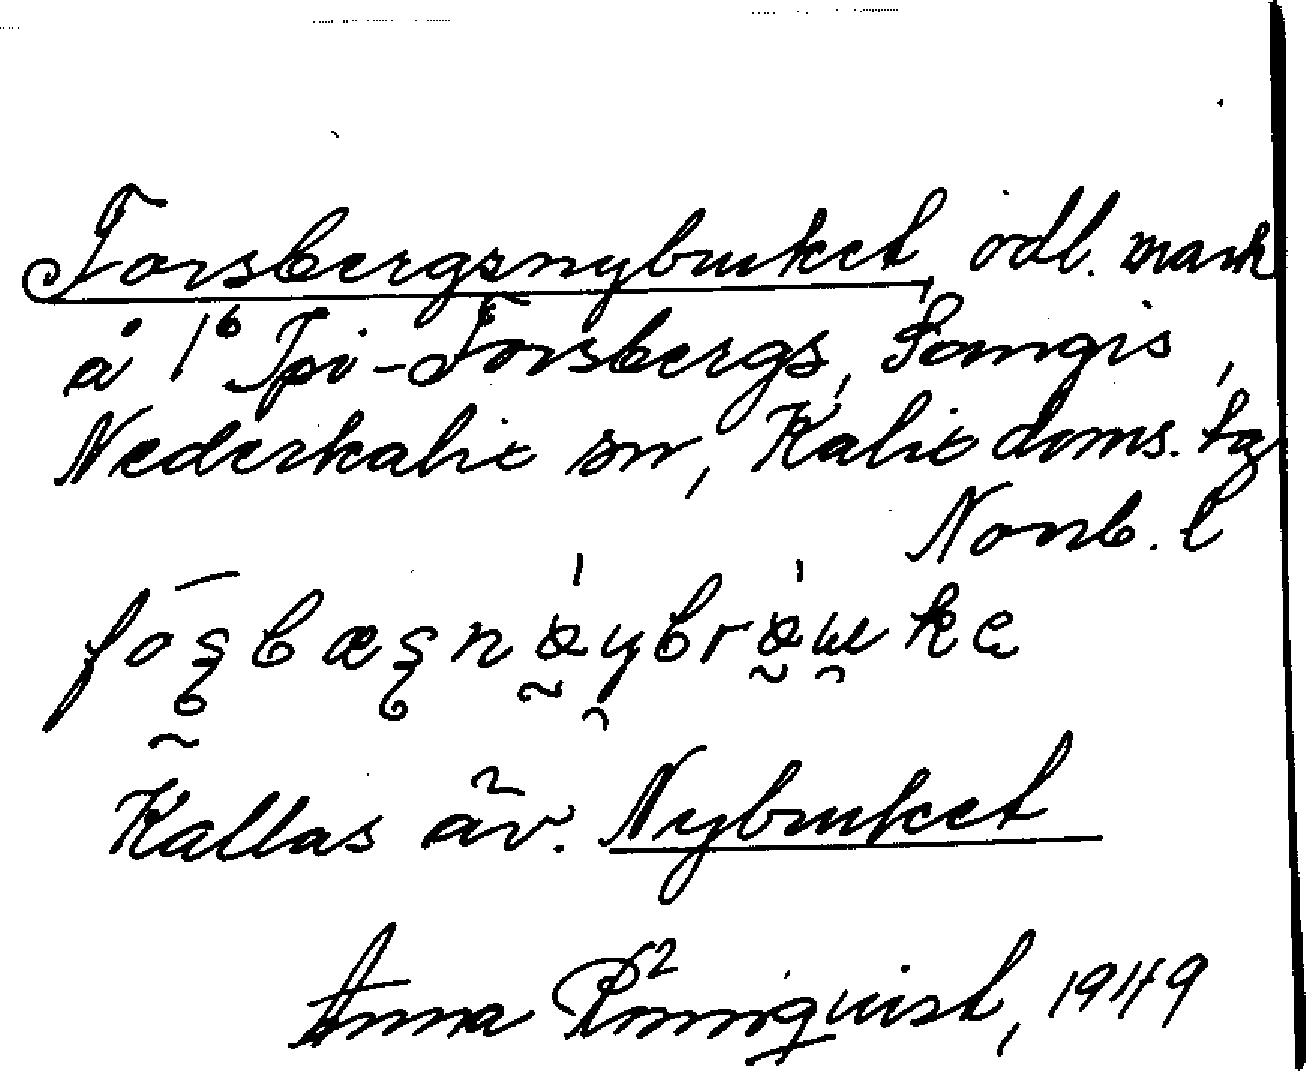 Forsbergsnybruket, odl. mark
å 1⁶ Tpi-Forsbergs, Pangis,
Nederkalix sn, Kalix doms. tg
Norrb. l
Kallas äv. Nybruket
Anna Rönnqvist, 1949